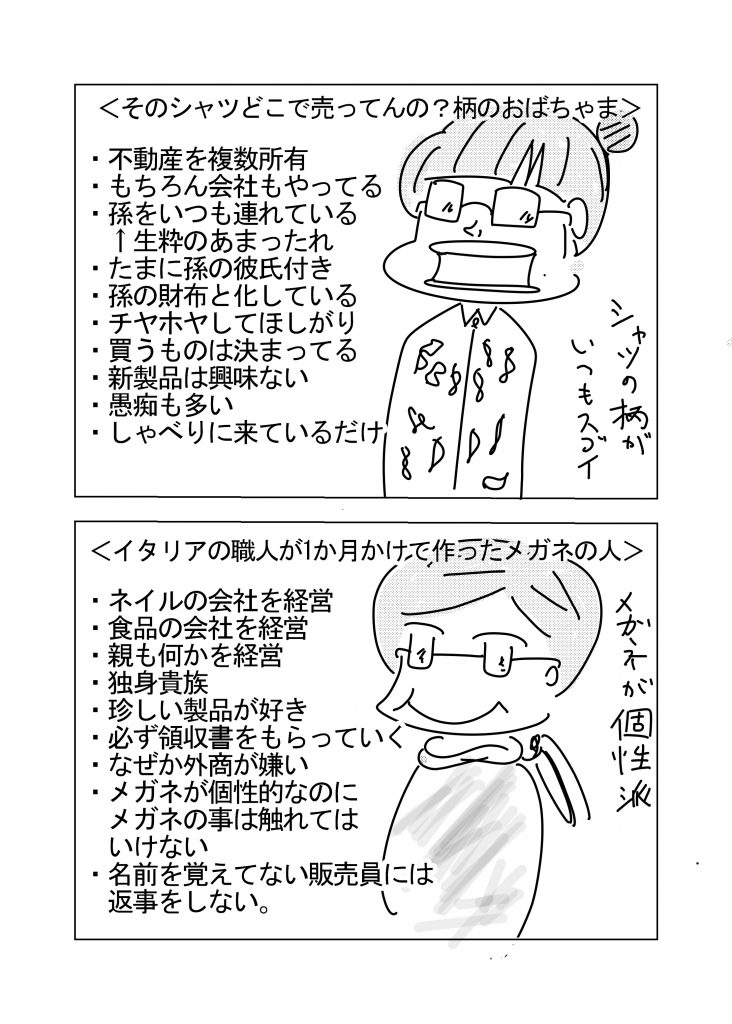 ＜そのシャツどこで売ってんの？柄のおばちゃま＞
・不動産を複数所有
・もちろん会社もやってる
・孫をいつも連れている
↑生粋のあまったれ
・たまに孫の彼氏付き
・孫の財布と化している
・チヤホヤしてほしがり
・買うものは決まってる
・新製品は興味ない
・愚痴も多い
・しゃべりに来ているだけ
シャツの柄が
いつもスゴイ
＜イタリアの職人が1か月かけて作ったメガネの人＞
・ネイルの会社を経営
・食品の会社を経営
・親も何かを経営
・独身貴族
・珍しい製品が好き
・必ず領収書をもらっていく
・なぜか外商が嫌い
・メガネが個性的なのに
メガネの事は触れては
いけない
・名前を覚えてない販売員には
返事をしない。
メガネが個性派